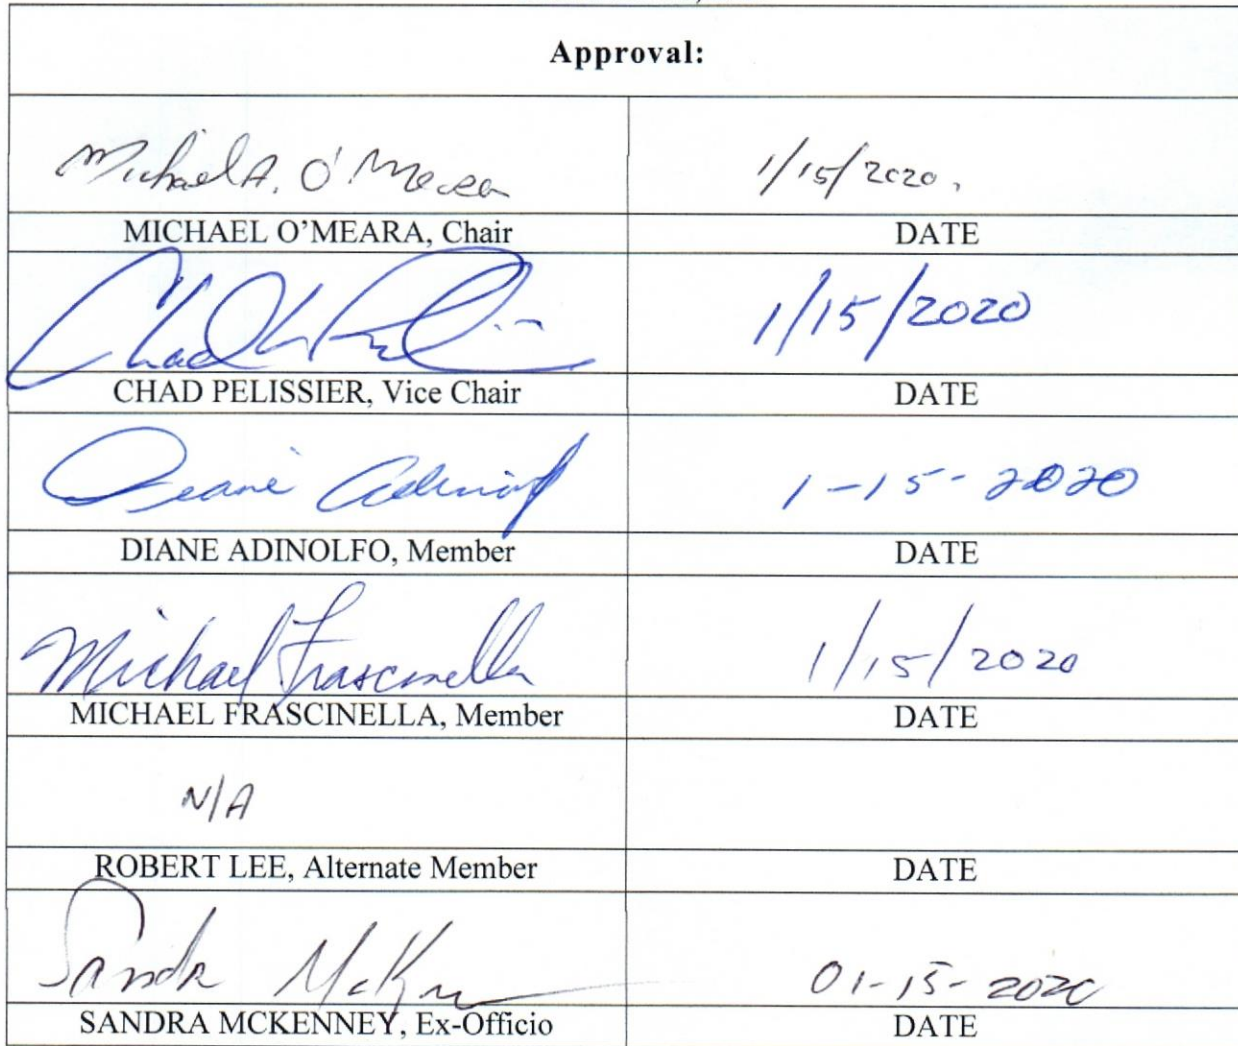 Approval:
Michael A. O'Meara 1/15/2020.
MICHAEL O'MEARA, Chair DATE
Chad Pelissier 1/15/2020
CHAD PELISSIER, Vice Chair DATE
Diane Adinolfo 1-15-2020
DIANE ADINOLFO, Member DATE
Michael Frascinella 1/15/2020
MICHAEL FRASCINELLA, Member DATE
N/A
ROBERT LEE, Alternate Member DATE
Sandra McKenney 01-15-2020
SANDRA MCKENNEY, Ex-Officio DATE